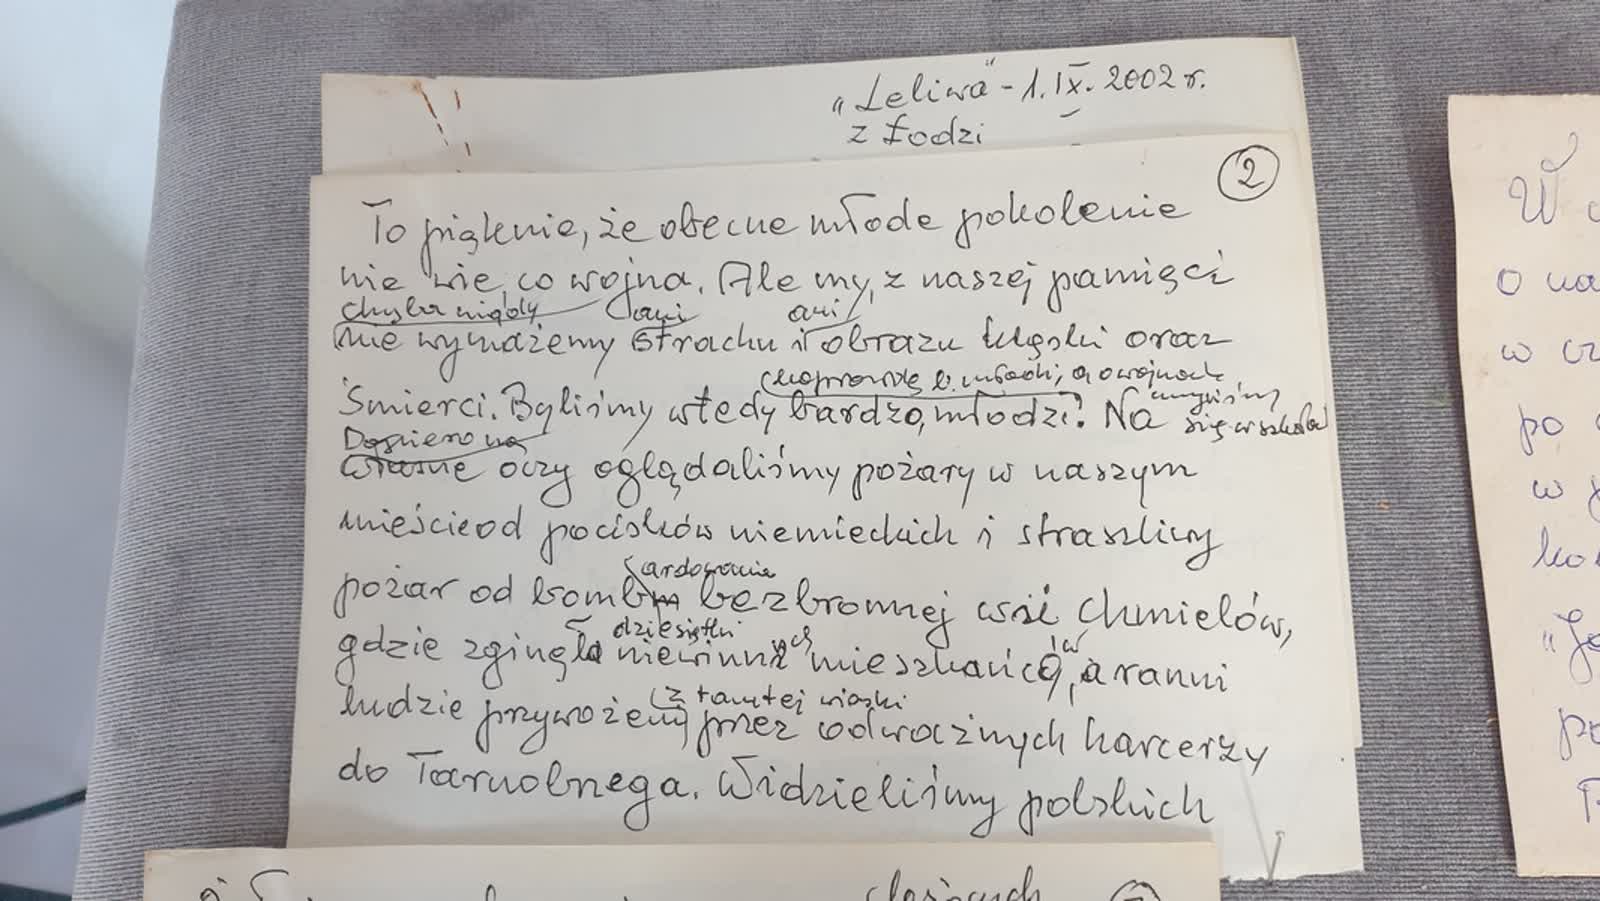 „Leliwa” - 1.IX.2002 r.
z Łodzi
2
To pięknie, że obecne młode pokolenie
nie wie, co wojna. Ale my, z naszej pamięci
chyba nigdy ani ani
nie wymażemy strachu i obrazu klęski oraz
śmierci. Byliśmy wtedy bardzo, młodzi. Na
coprawda b. młodzi, a o wojnach uczyliśmy
się w szkole
Dopiero na
własne oczy oglądaliśmy pożary w naszym
mieście od pocisków niemieckich i straszliwy
ardowania
pożar od bomb bezbronnej wsi Chmielów,
dziesiątki ych ów
gdzie zginęło niewinn mieszkańc, a ranni
z tamtej wioski
ludzie przywożeni przez odważnych harcerzy
do Tarnobrzega. Widzieliśmy polskich
W
o na
w cz
po
w
"Je
po